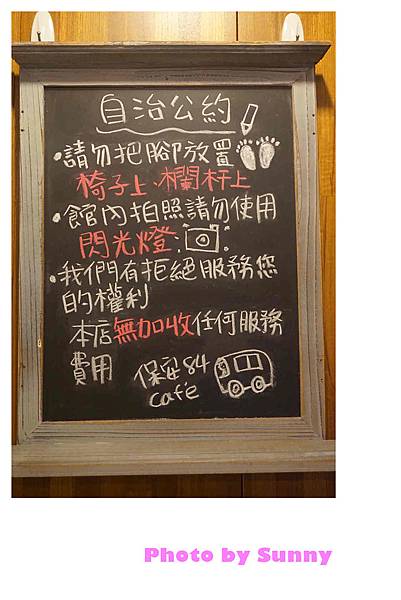 自治公約
•請勿把腳放置
椅子上、欄杆上
•館內拍照請勿使用
閃光燈.
•我們有拒絕服務您
的權利
本店無加收任何服務
費用
保安84
café
Photo by Sunny